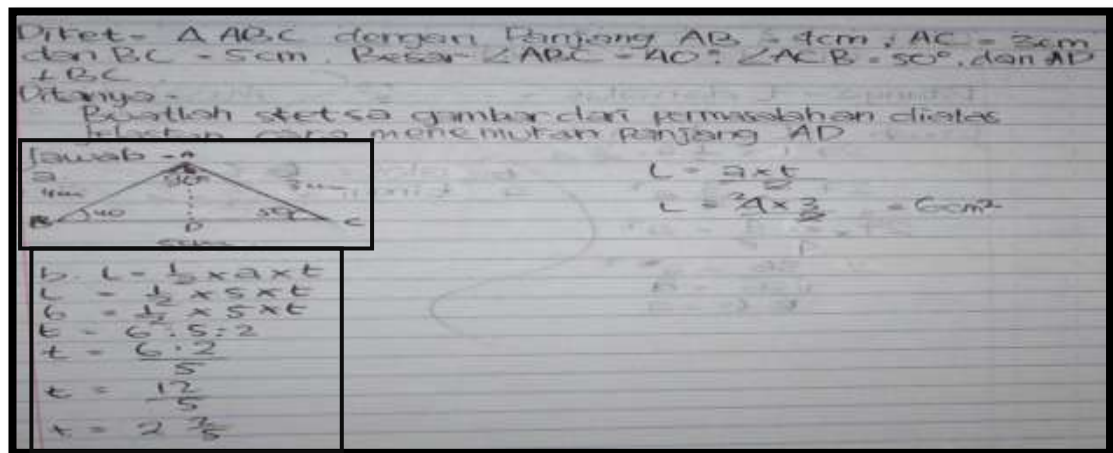 Diket = Δ ABC dengan Panjang AB = 4cm, AC = 3cm
dan BC = 5cm. Besar ∠ABC = 40°, ∠ACB = 50°, dan AD
⊥ BC
Ditanya =
Buatlah sketsa gambar dari permasalahan diatas
Jelaskan cara menemukan panjang AD
Jawab = A
a
4cm 90° 3cm
B 40 D 50 C
5cm
L = a x t / 2
L = 4 x 3 / 2 = 6cm²
b. L = 1/2 x a x t
L = 1/2 x 5 x t
6 = 1/2 x 5 x t
t = 6 : 5 : 2
t = 6 . 2 / 5
t = 12 / 5
t = 2 2/5